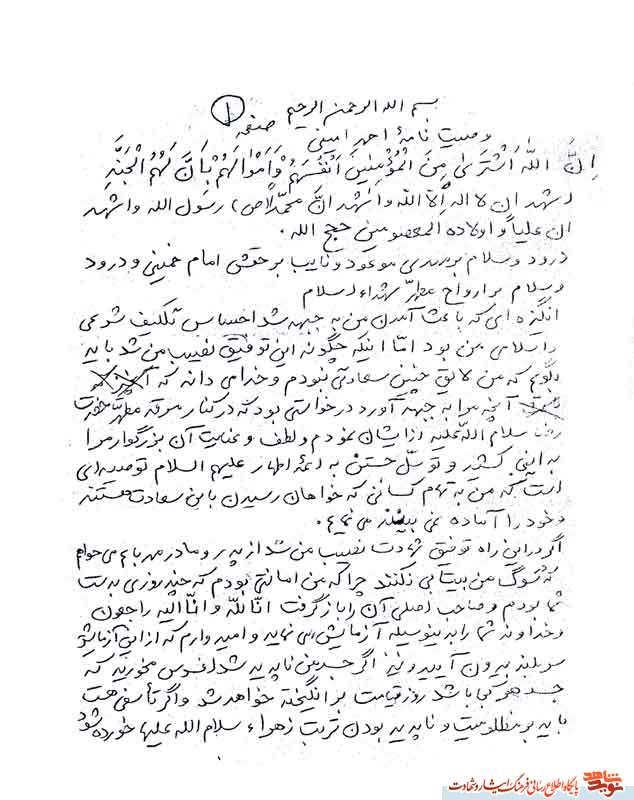 بسم الله الرحمن الرحیم صفحه ۱
وصیت نامهٔ احمد امینی
اِنَّ اللّهَ اَشْتَریٰ مِنَ الْمُؤمِنینَ اَنْفُسَهُمْ وَاَمْوالَهُمْ بِاَنَّ لَهُمُ الْجَنَّه
اشهد ان لا اله اِلّا الله و اشهد انَّ محمّداً (ص) رسول الله و اشهد
ان علیاً و اولاده المعصومین حجج الله.
درود و سلام بر مهدی موعود و نایب بر حقش امام خمینی و درود
و سلام بر ارواح مطهّر شهداء اسلام
انگیزه ای که باعث آمدن من به جبهه شد احساس تکلیف شرعی
و اسلامی من بود امّا اینکه چگونه این توفیق نصیب من شد باید
بگویم که من لایق چنین سعادتی نبودم و خدا می داند که
آنچه مرا به جبهه آورد درخواستی بود که در کنار مرقد مطهّر حضرت
رضا سلام اللّه علیه از ایشان نمودم و لطف و عنایت آن بزرگوار مرا
به اینجا کشید و توسّل جستن به ائمهٔ اطهار علیهم السلام توصیه ای
است که من به تمام کسانی که خواهان رسیدن باین سعادت هستند
و خود را آماده نمی بینند می نمایم.
اگر در این راه توفیق شهادت نصیب من شد از پدر و مادر مهربانم می خواهم
که در سوگ من بیتابی نکنند چرا که من امانتی بودم که چند روزی بدست
شما بودم و صاحب اصلی آن را باز گرفت انّا للّه و انّا الیه راجعون
و خداوند شما را بدینوسیله آزمایش می نماید و امید وارم که از این آزمایش
سربلند بیرون آیید و نیز اگر جسد من ناپدید شد افسوس مخورید که
جسد هر کجا باشد روز قیامت بر انگیخته خواهد شد و اگر تأسفی هست
باید بر مظلومیت و ناپدید بودن تربت زهراء سلام الله علیها خورده شود
نوید شاهد
پایگاه اطلاع رسانی فرهنگ ایثار و شهادت